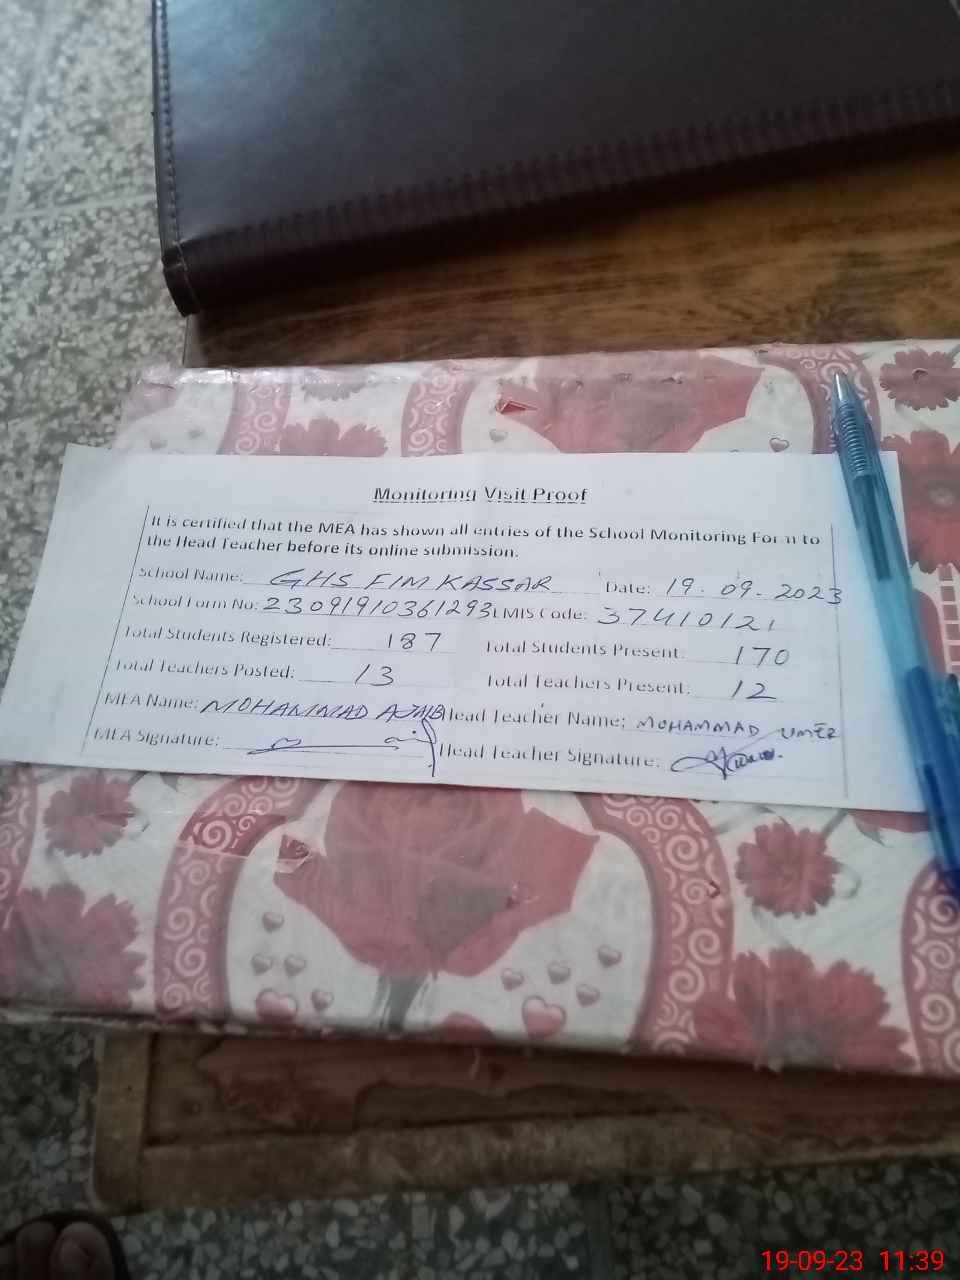 Monitoring Visit Proof
It is certified that the MEA has shown all entries of the School Monitoring Form to
the Head Teacher before its online submission.
School Name: GHS FIM KASSAR Date: 19.09.2023
School Form No: 23091910361293 EMIS Code: 37410121
Total Students Registered: 187 Total Students Present: 170
Total Teachers Posted: 13 Total Teachers Present: 12
MEA Name: MOHAMMAD AJAIB Head Teacher Name: MOHAMMAD UMER
MEA Signature: Head Teacher Signature:
19-09-23 11:39